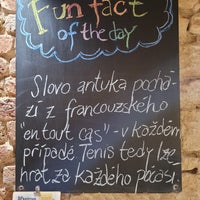 Fun fact
of the day
Slovo antuka pochá-
zí z francouzského
"en tout cas" - v každém
případě. Tenis tedy lze
hrát za každého počasí.